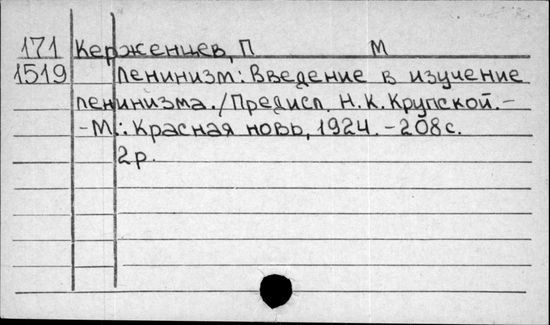 171 Керженцев, П М
1519 Ленинизм: Введение в изучение
ленинизма./Предисл. Н.К.Крупской.-
-М.: Красная новь, 1924.-208с.
2р.